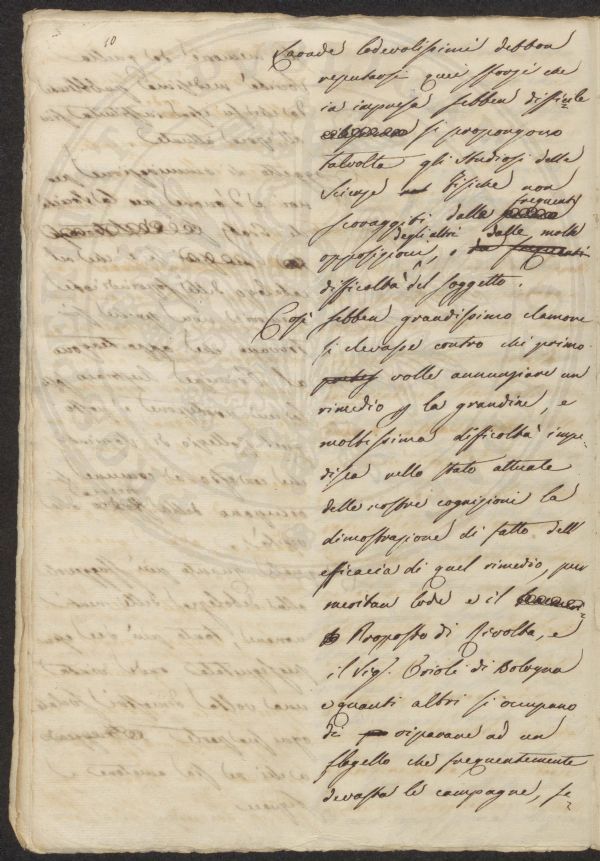 10
lodevolissimi debbon
reputarsi quei sforzi che
in impresa sebben diffici=le
si propongono
talvolta gli studiosi delle
Scienze Fisiche non
scoraggiti dalle frequenti
opposizioni degli altri, o dalle molte
difficoltà del soggetto.
Così sebben grandissimo clamore
si elevasse contro chi primo
volle annunziare un
rimedio p la grandine, e
moltissima difficoltà impe=
disca nello stato attuale
delle nostre cognizioni la
dimostrazione di fatto dell'
efficacia di quel rimedio, pur
meritan lode e il
Proposto di Rivolta, e
il Sig. Orioli di Bologna
e quanti altri si occupano
di riparare ad un
flagello che frequentemente
devasta le campagne, se=